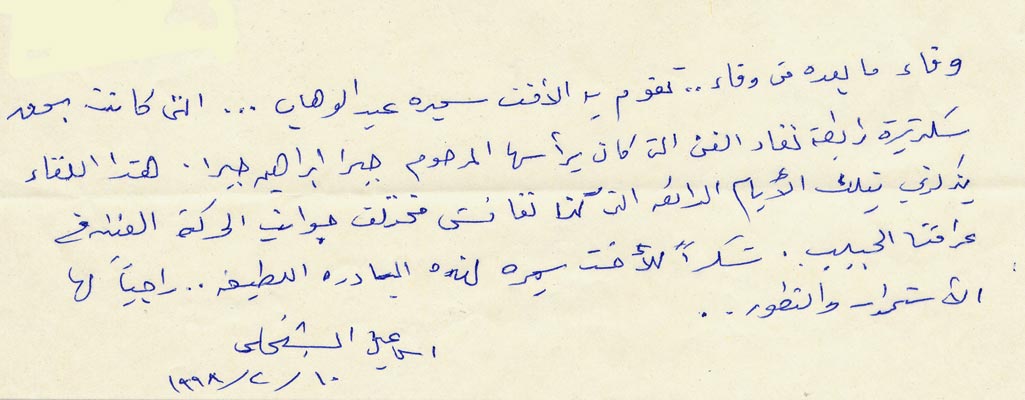 وفاء ما بعده من وفاء .. تقوم به الأخت سميره عبد الوهاب ... التي كانت بحق
سكرتيرة رابطة نقاد الفن التي كان يرأسها المرحوم جبرا ابراهيم جبرا . هذا اللقاء
يذكرني بتلك الأيام الرائعه التي كنا نناقش مختلف جوانب الحركة الفنية في
عراقنا الحبيب . شكراً للأخت سميره لهذه المبادره اللطيفه .. راجياً لها
الاستمرار والتطور ..
اسماعيل الشيخلي
١٩٩٨/٢/١٠